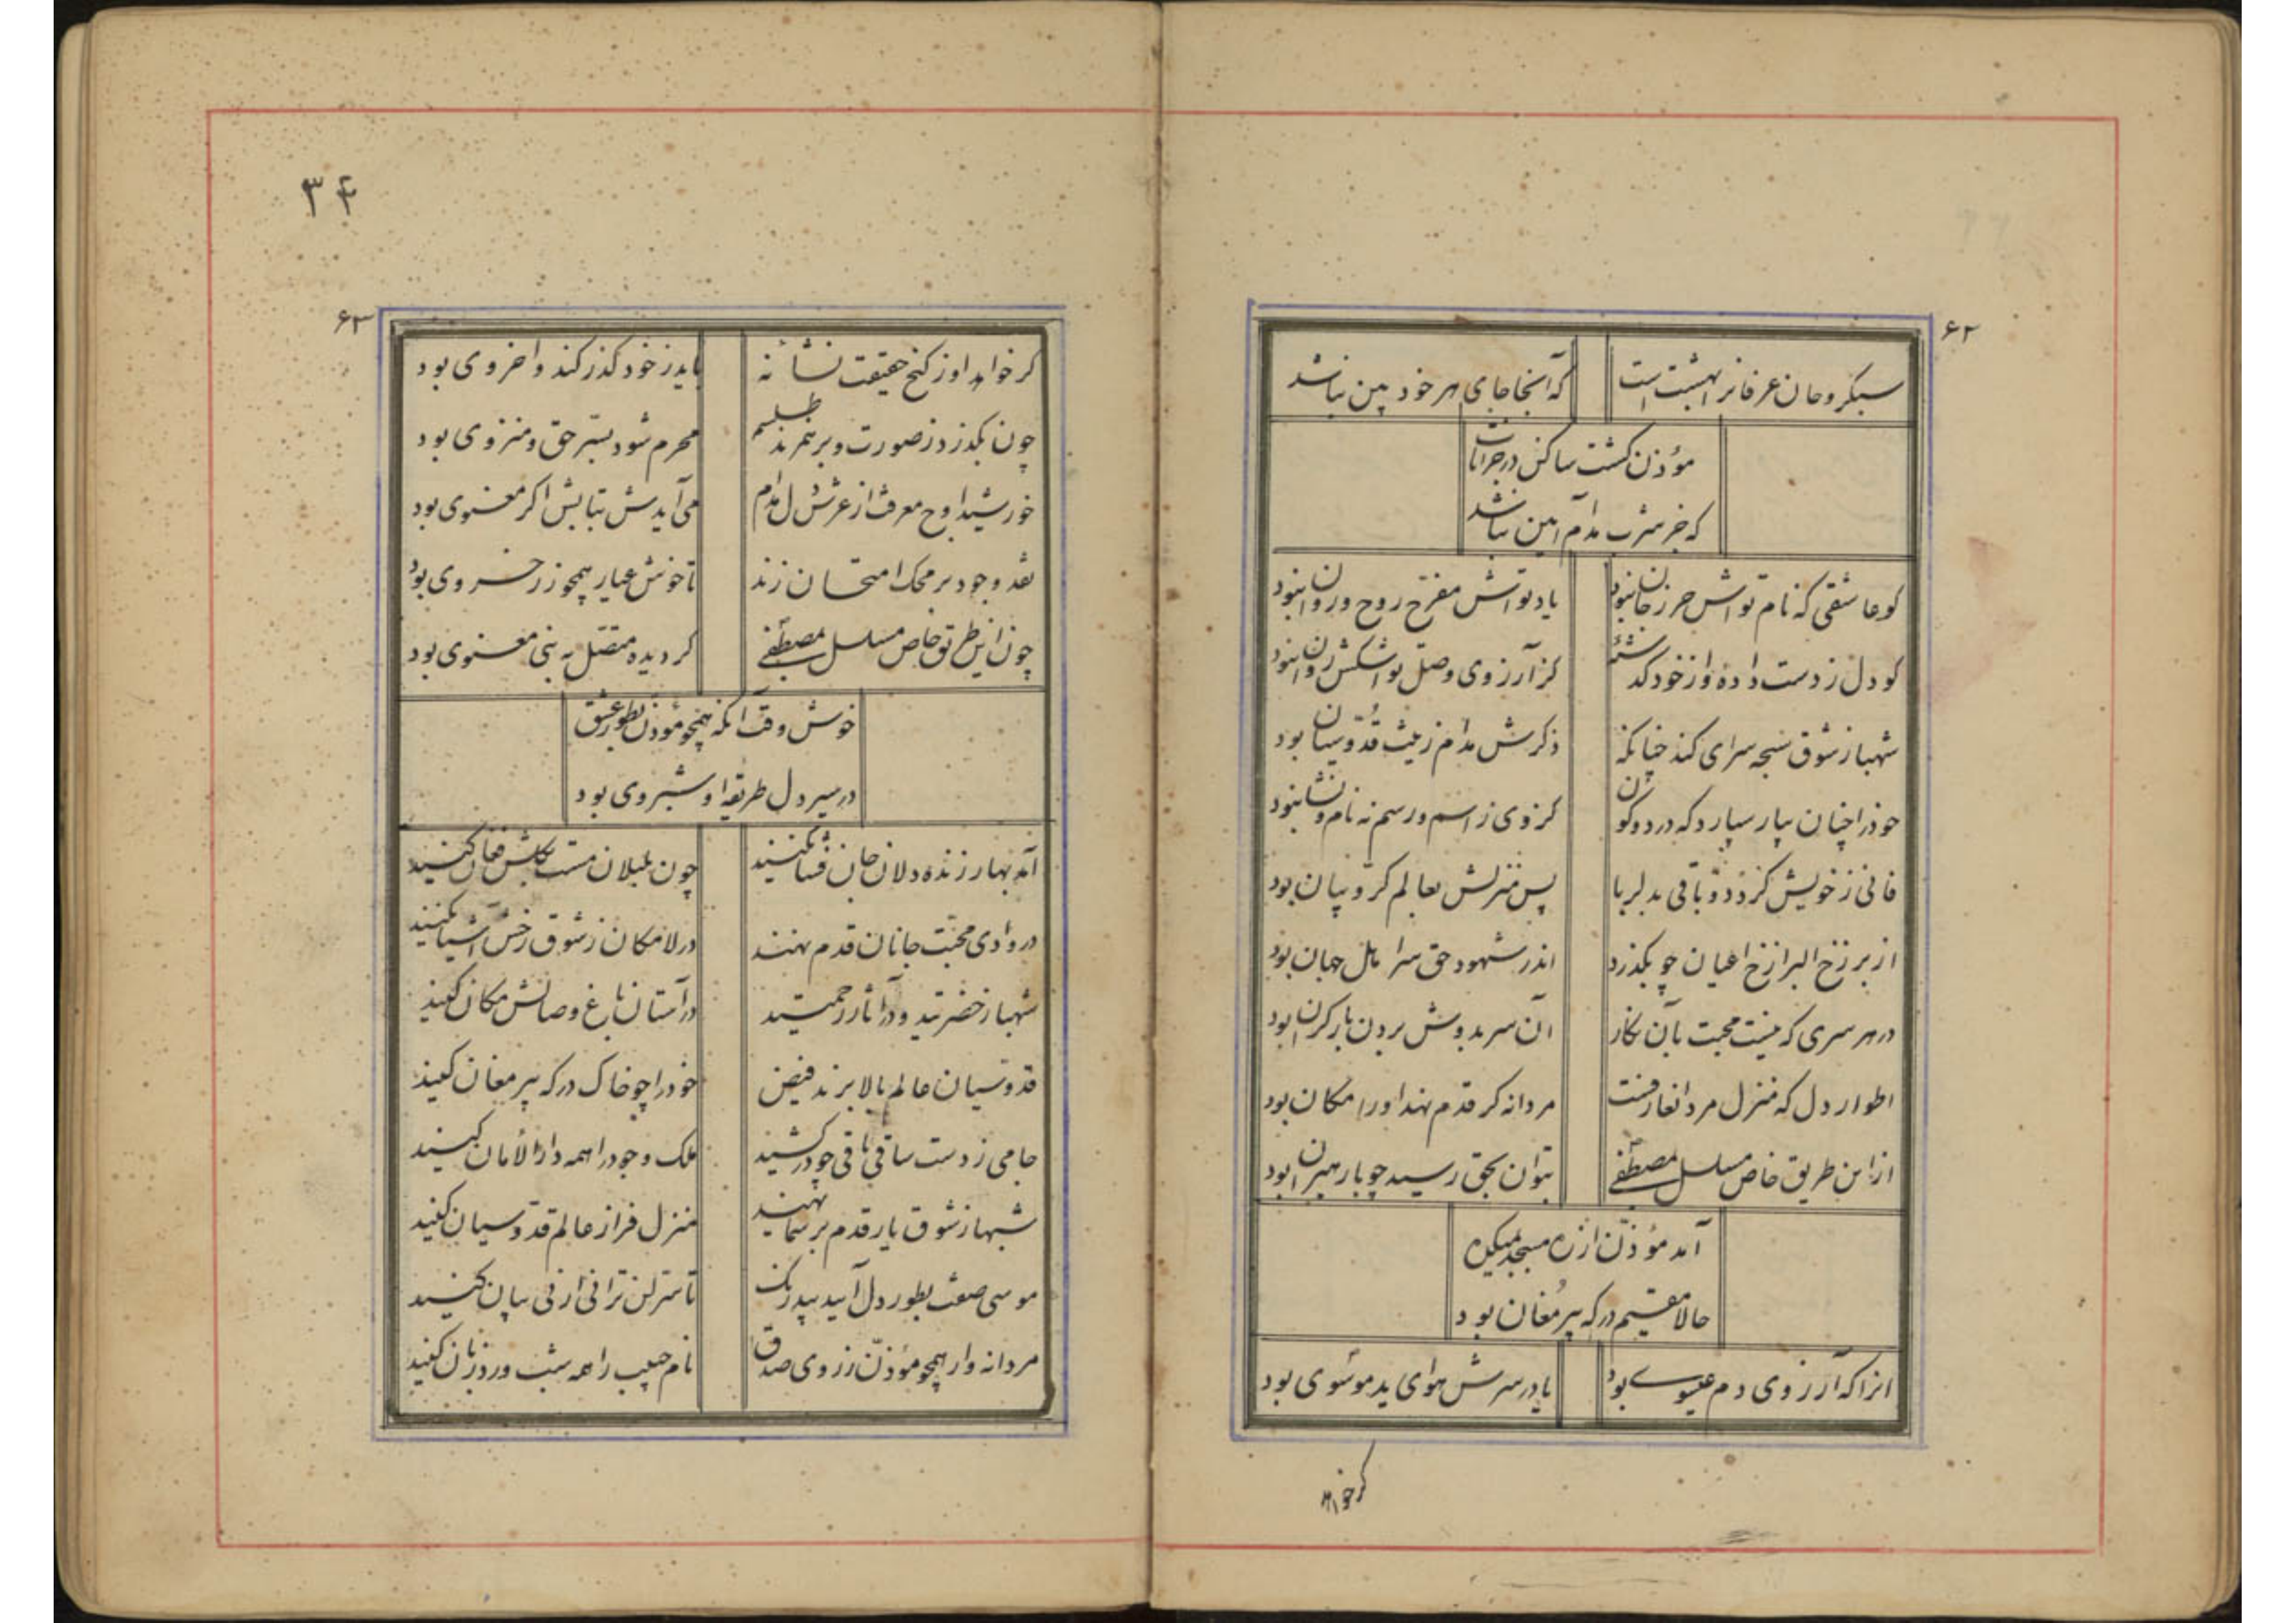 ۶۲
سبکروحان عرفانرا بهشت است
که آنجا جای هر خود بین نباشد
مؤذن کشت ساکن در خرابات
که جز شرب مدام آیین نباشد
کو عاشقی که نام تواش حرز جان نبود
یاد تواش مفرح روح و روان نبود
کو دل ز دست داده و از خود گذشته
کز آرزوی وصل تو اشکش روان نبود
شهباز شوق سبحه سرای کند چنانکه
ذکرش مدام زینت قدوسیان بود
خودرا چنان بیار سپارد که در دو کون
کز وی ز اسم و رسم نه نام و نشان نبود
فانی ز خویش کردد و باقی بدلربا
پس منزلش بعالم کروبیان بود
از برزخ البرازخ اعیان چو بکذرد
اندر شهود حق سرا مل جهان بود
در هر سری که نیست محبت بآن نکار
آن سر بدوش بردن بار کران بود
اطوار دل که منزل مردان عارفست
مردانه کر قدم نهد اورا مکان بود
از این طریق خاص مسلسل بمصطفی
بتوان بحق رسید چو با رهبران بود
آمد مؤذن از ره مسجد بمیکده
حالا مقیم درکه پیر مغان بود
انرا که آرزوی دم عیسوی بود
یا در سرش هوای ید موسوی بود
کر خواهد
۳۴
۶۳
کر خواهد او ز کنج حقیقت نشانه
باید ز خود کذر کند و اخروی بود
چون بکذرد ز صورت و برهم زند طلسم
محرم شود بسر حق و منزوی بود
خورشید اوج معرفت از عرش دل مدام
می آیدش بتابش اکر معنوی بود
نقد وجود بر محک امتحان زند
تا خوش عیار همچو زر خسروی بود
چون از این طریق خاص مسلسل بمصطفی
کردیده متصل به نبی معنوی بود
خوش وقت آنکه همچو مؤذن بطور عشق
در سیر دل طریقه او شبروی بود
آمد بهار زنده دلان جان فشان کنید
چون بلبلان مست بکلشن فغان کنید
در وادی محبت جانان قدم نهند
در لامکان ز شوق رخش آشیان کنید
شهباز حضرتید و در آثار رحمتید
در آستان باغ وصالش مکان کنید
قدوسیان عالم بالا برند فیض
خودرا چو خاک درکه پیر مغان کنید
جامی ز دست ساقی باقی چو در کشید
ملک وجودرا همه دار الامان کنید
شبها ز شوق یار قدم بر سما نهید
منزل فراز عالم قدوسیان کنید
موسی صفت بطور دل آیید بیدرنک
تا سر لن ترانی ارنی بیان کنید
مردانه وار همچو مؤذن ز روی صدق
نام حبیب را همه شب ورد زبان کنید